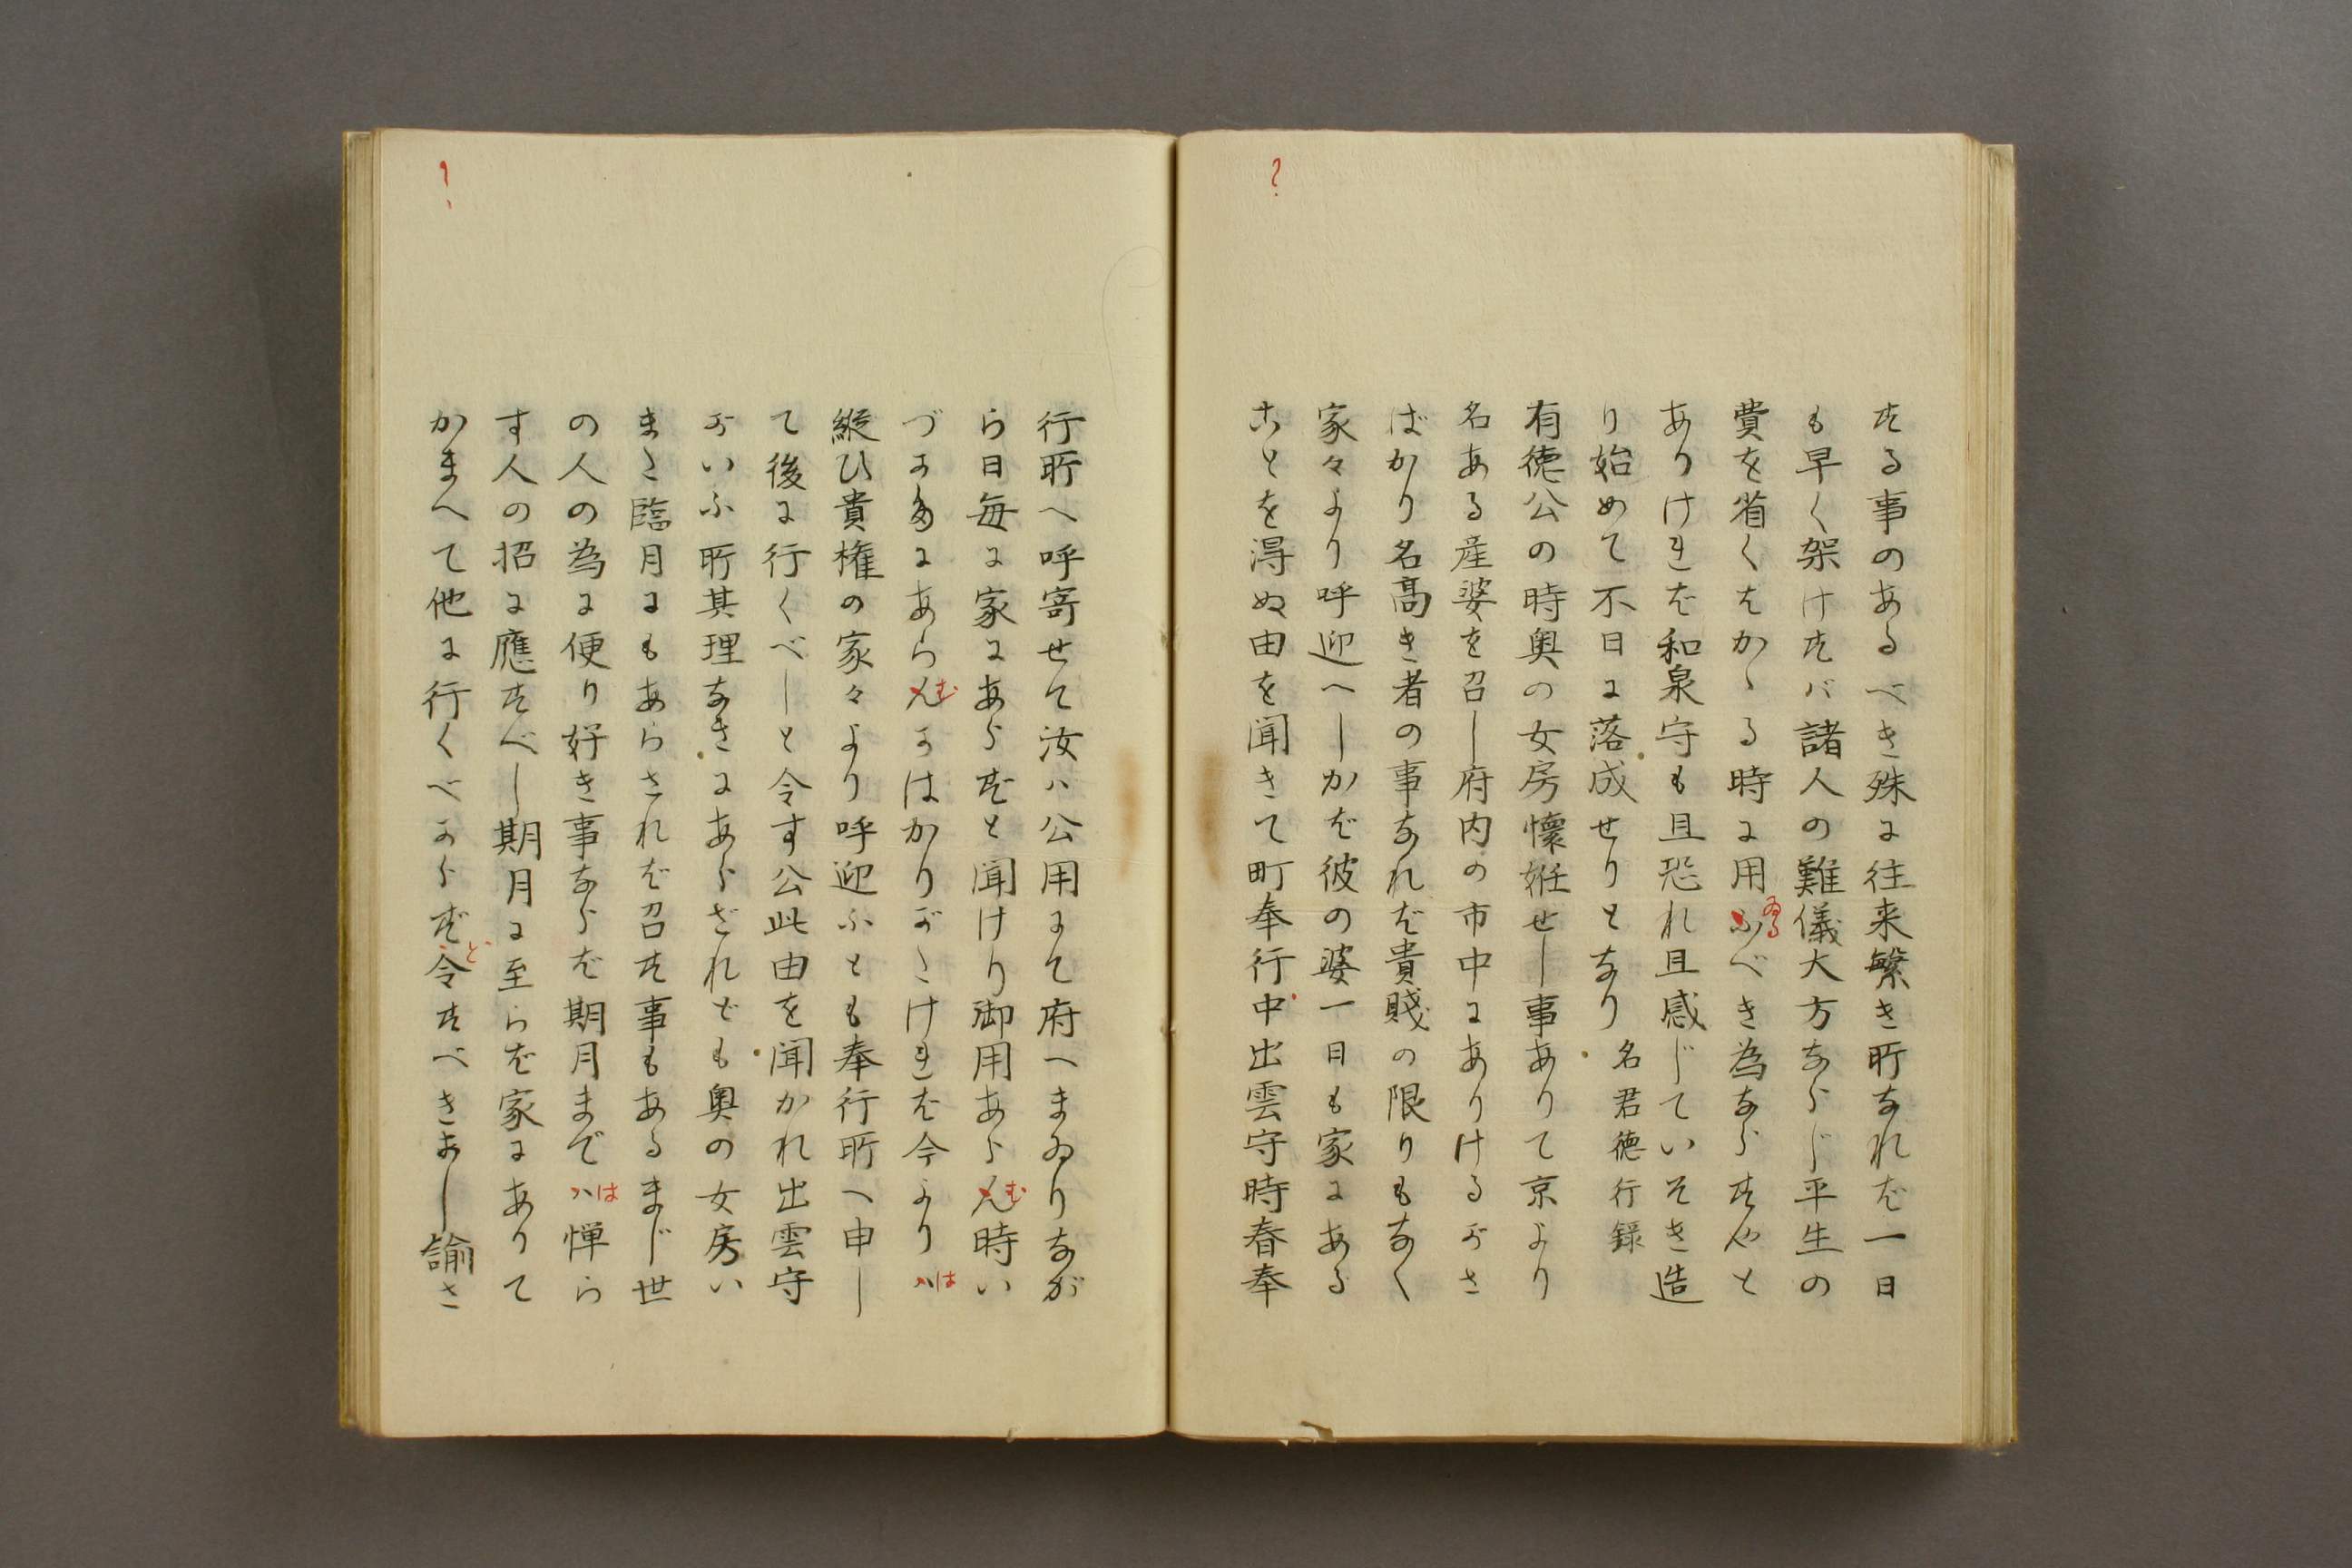 ?
する事のあるべき殊に往来繁き所なれば一日
も早く架けすバ諸人の難儀大方ならじ平生の
費を省くもかゝる時に用ふべき為ならすやと
ゐる
ありければ和泉守も且恐れ且感じていそき造
り始めて不日に落成せりとなり 名君徳行録
有徳公の時奥の女房懐妊せし事ありて京より
名ある産婆を召し府内の市中にありけるがさ
ばかり名高き者の事なれば貴賤の限りもなく
家々より呼迎へしかば彼の婆一日も家にある
ことを得ぬ由を聞きて町奉行中出雲守時春奉
行所へ呼寄せて汝ハ公用にて府へまゐりなが
ら日毎に家にあらずと聞けり御用あらん時い
む
づかたにあらんかはかりがたけれは今よりハ
む
は
縦ひ貴権の家々より呼迎ふとも奉行所へ申し
て後に行くべしと令す公此由を聞かれ出雲守
がいふ所其理なきにあらざれども奥の女房い
また臨月にもあらされば召す事もあるまじ世
の人の為に便り好き事ならば期月まではハ憚ら
す人の招に應すべし期月に至らば家にありて
かまへて他に行くべからず令すべきよし諭さ
と
?